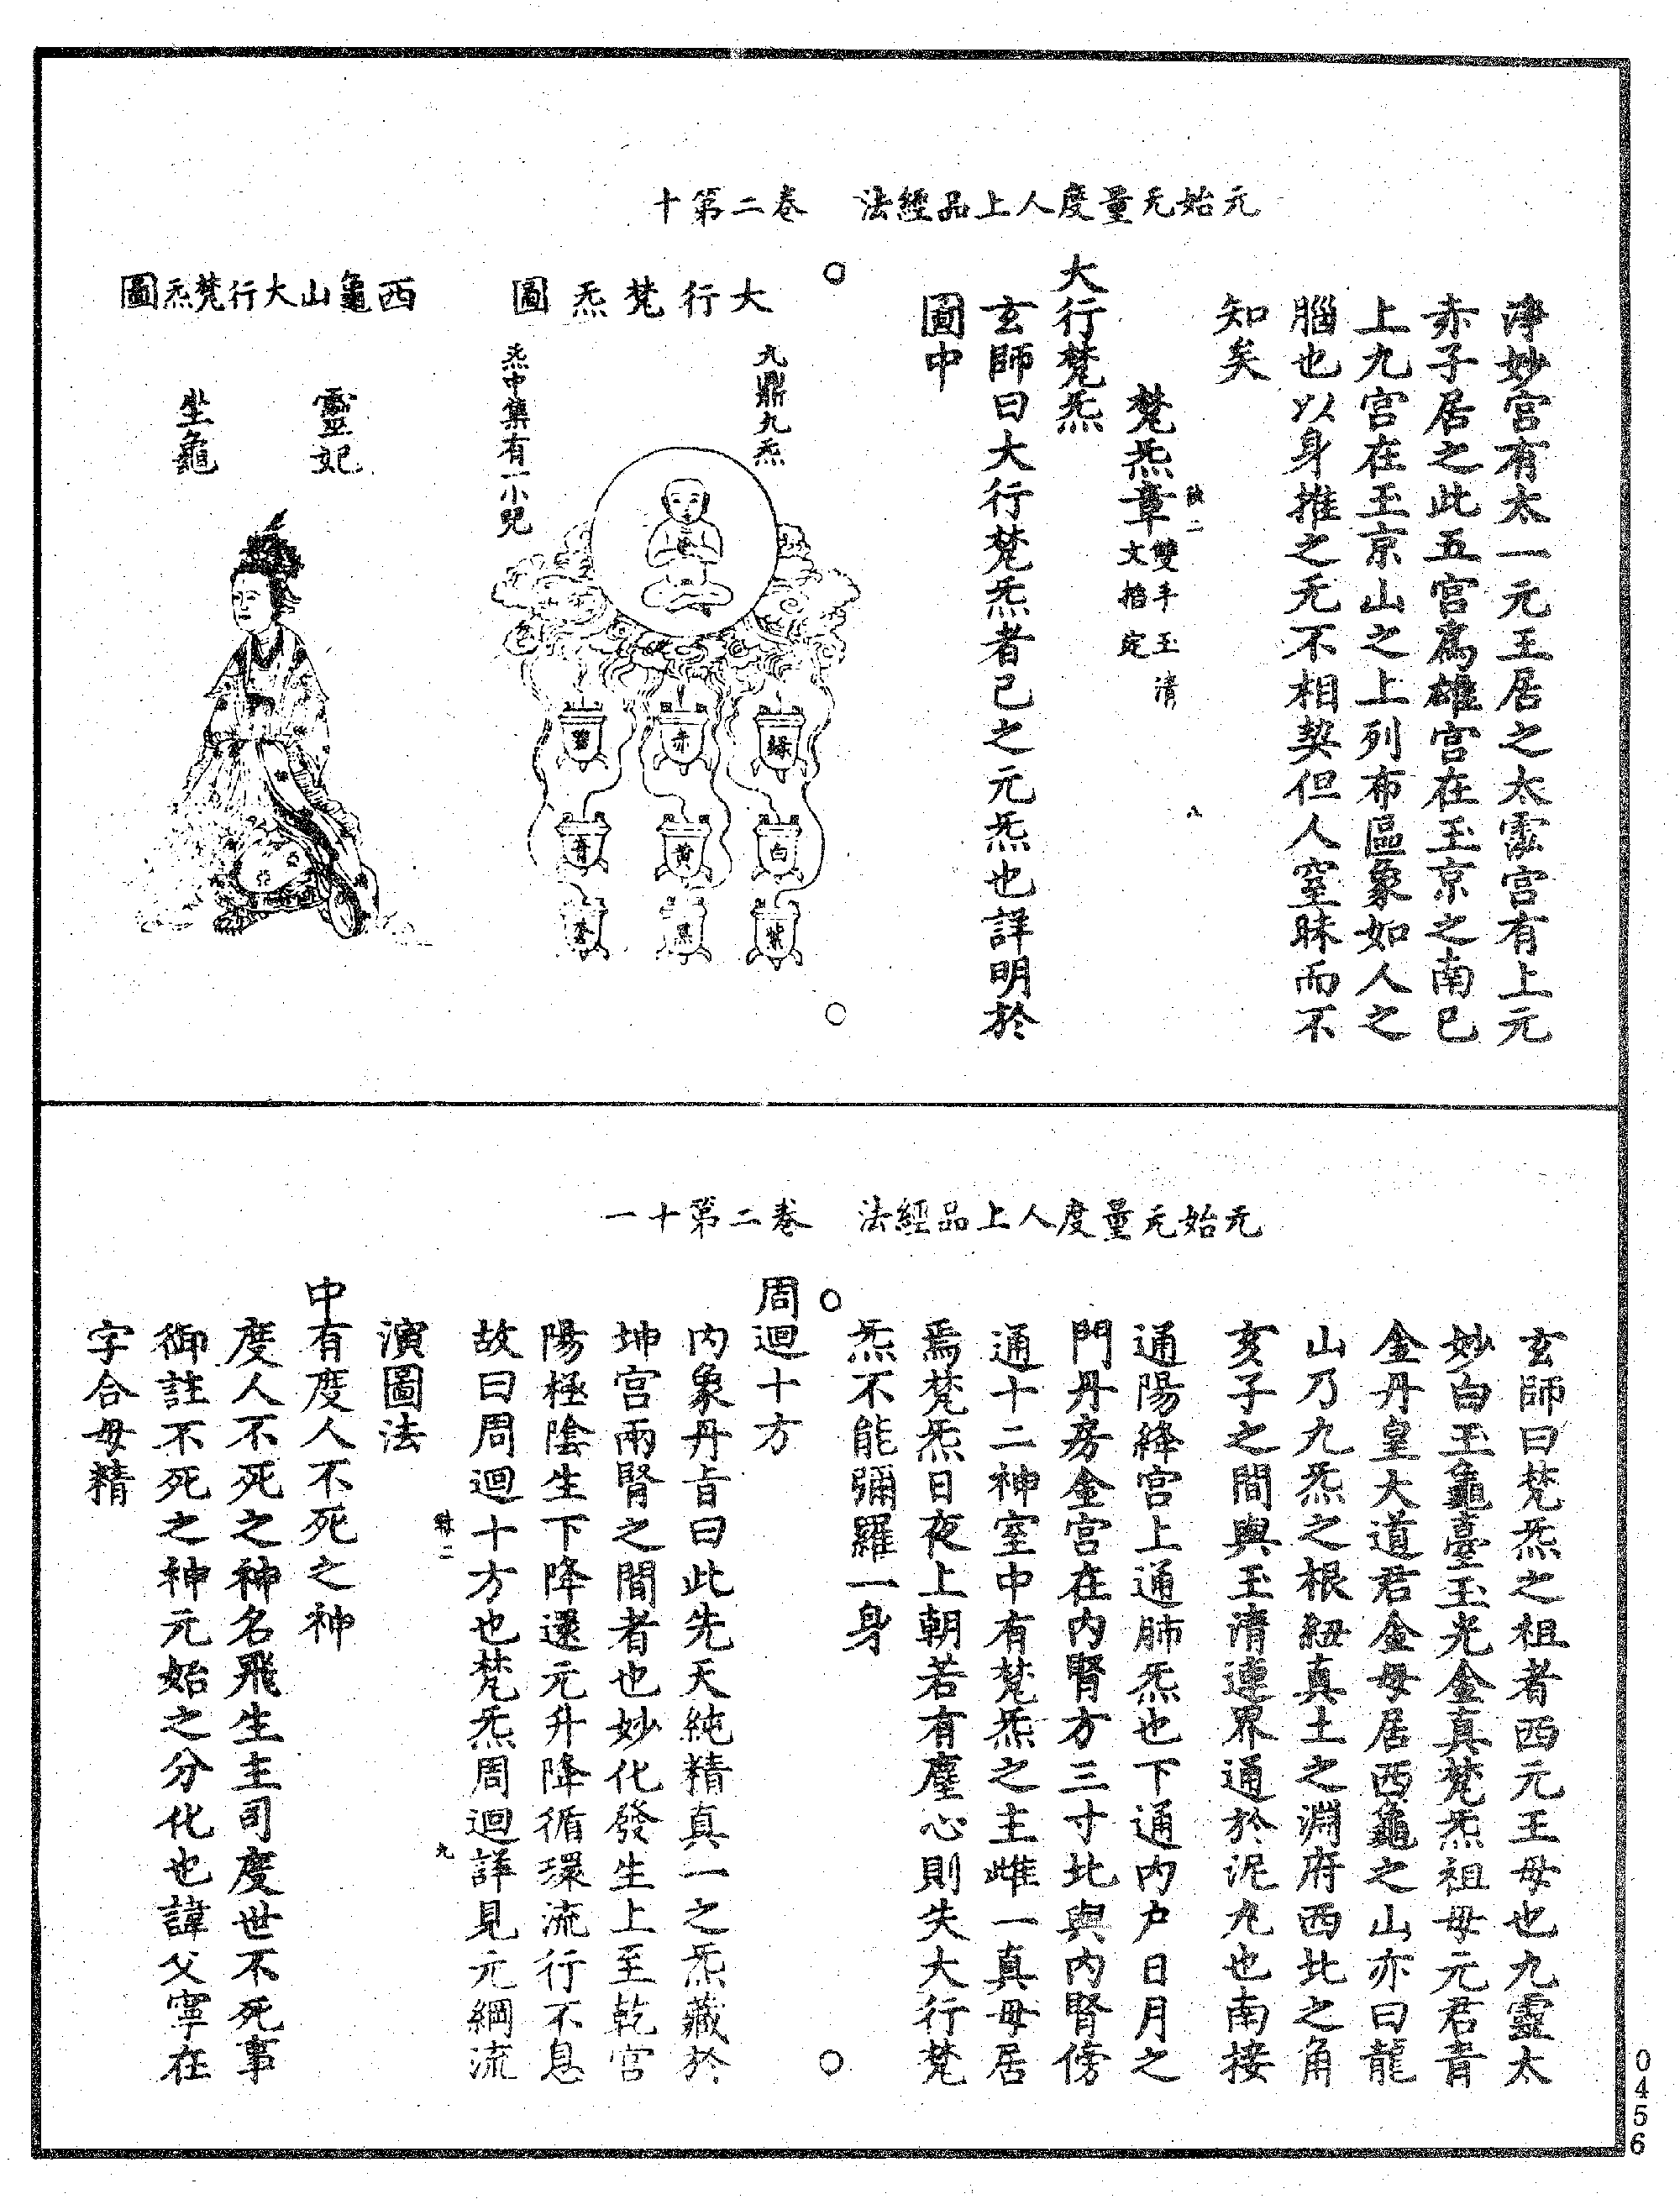 元始无量度人上品經法　卷二第十
淨妙宮有太一元王居之太霊宮有上元
赤子居之此五宮為雄宮在玉京之南已
上九宮在玉京山之上列布區象如人之
腦也以身推之无不相契但人窒昧而不
知矣
梵炁章雙手玉清文掐定
二
八
大行梵炁
玄師曰大行梵炁者已之元炁也詳明於
圖中
大行梵炁圖
九鼎九炁
炁中集有一小兒
綠
赤
碧
白
黄
青
紫
黑
西龜山大行梵炁圖
靈妃
坐龜
元始无量度人上品經法　卷二第十一
玄師曰梵炁之祖者西元王母也九靈太
妙白玉龜臺玉光金真梵炁祖母元君青
金丹皇大道君金母居西龜之山亦曰龍
山乃九炁之根紐真土之淵府西北之角
亥子之間與玉清連界通於泥丸也南接
通陽絳宮上通肺炁也下通内户日月之
門丹房金宮在内腎方三寸北與内腎傍
通十二神室中有梵炁之主雌一真母居
焉梵炁日夜上朝若有塵心則失大行梵
炁不能彌羅一身
周迴十方
内象丹旨曰此先天純精真一之炁藏於
坤宮兩腎之間者也妙化發生上至乾宮
陽極陰生下降還元升降循環流行不息
故曰周迴十方也梵炁周迴詳見元綱流
二
九
演圖法
中有度人不死之神
度人不死之神名飛生主司度世不死事
御註不死之神元始之分化也諱父寧在
字合母精
0456